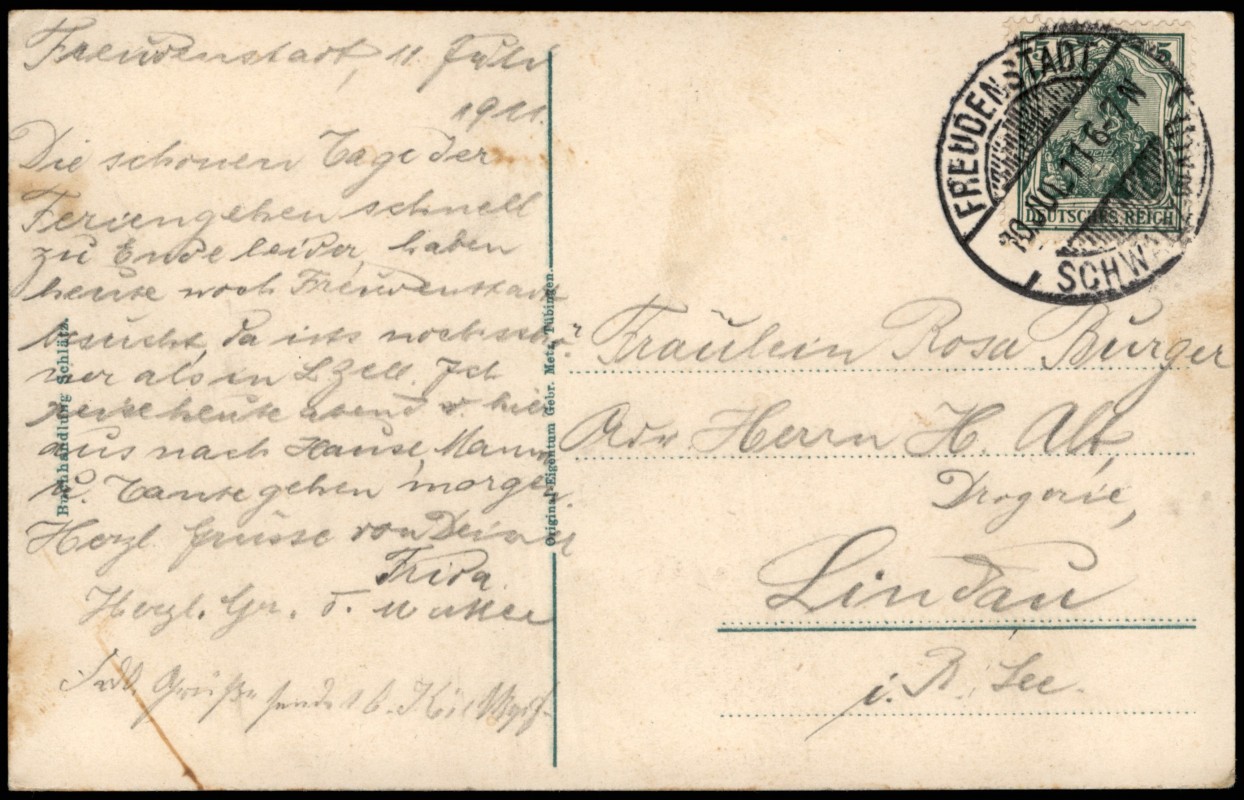 Freudenstadt, 11. Juli
1911.
Die schönen Tage der
Ferien gehen schnell
zu Ende leider, haben
heute noch Freudenstadt
besucht, da ists noch schö-
ner als in LZell. Ich
reise heute abend v. hier
aus nach Hause, Mama
u. Tante gehen morgen
Herzl. Grüsse von Deiner
Frida.
Herzl. Gr. d. Mutter
Grüße sendet
Buchhandlung Schlätz.
Original-Eigentum Gebr. Metz, Tübingen.
5
DEUTSCHES REICH
FREUDENSTADT
10 JUL 11 6-7 N
SCHW
Fräulein Rosa Burger
Adr. Herrn H. Alt,
Drogerie,
Lindau
i. B. See.